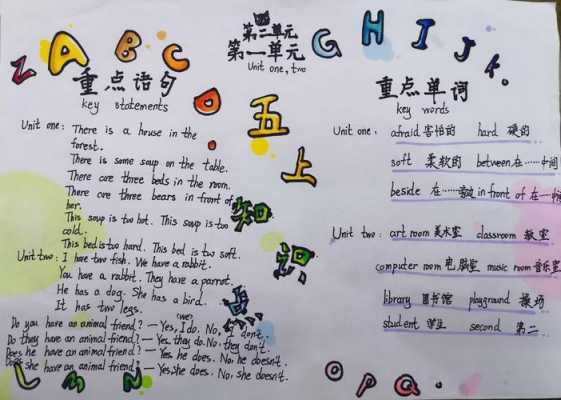 Z A B C
第二单元
第一单元
Unit one, two
G H I J K
重点语句
key statements
Unit one: There is a house in the
forest.
There is some soup on the table.
There are three beds in the room.
There are three bears in front of
her.
This soup is too hot. This soup is too
cold.
This bed is too hard. This bed is too soft.
Unit two: I have two fish. We have a rabbit.
You have a rabbit. They have a parrot.
He has a dog. She has a bird.
It has two legs.
(we)
Do you have an animal friend? — Yes, I do. No, I don't.
Do they have an animal friend? — Yes, they do. No, they don't.
Does he have an animal friend? — Yes he does. No, he doesn't.
Does she have an animal friend? — Yes, she does. No, she doesn't.
D
五
上
知
识
重点单词
key words
Unit one: afraid 害怕的 hard 硬的
soft 柔软的 between 在……中间
beside 在…… in front of 在
Unit two: art room 美术室 classroom 教室
computer room 电脑室 music room 音乐室
library 图书馆 playground 操场
student 学生 second 第二
L M N
O P Q